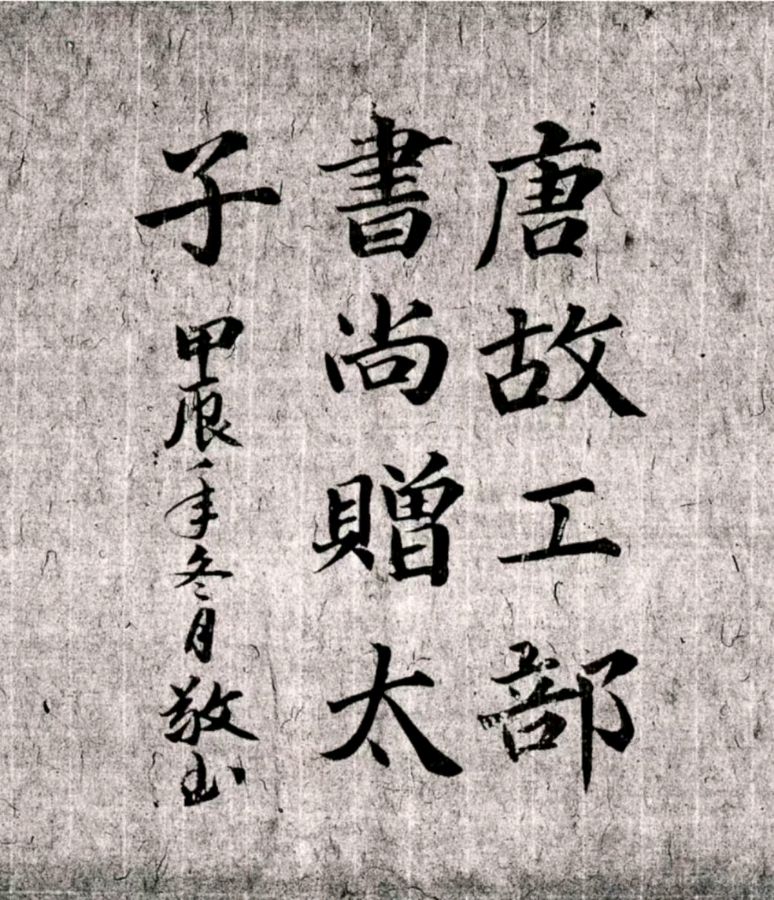 唐故工部
書尚贈太
子
甲辰年冬月敬书